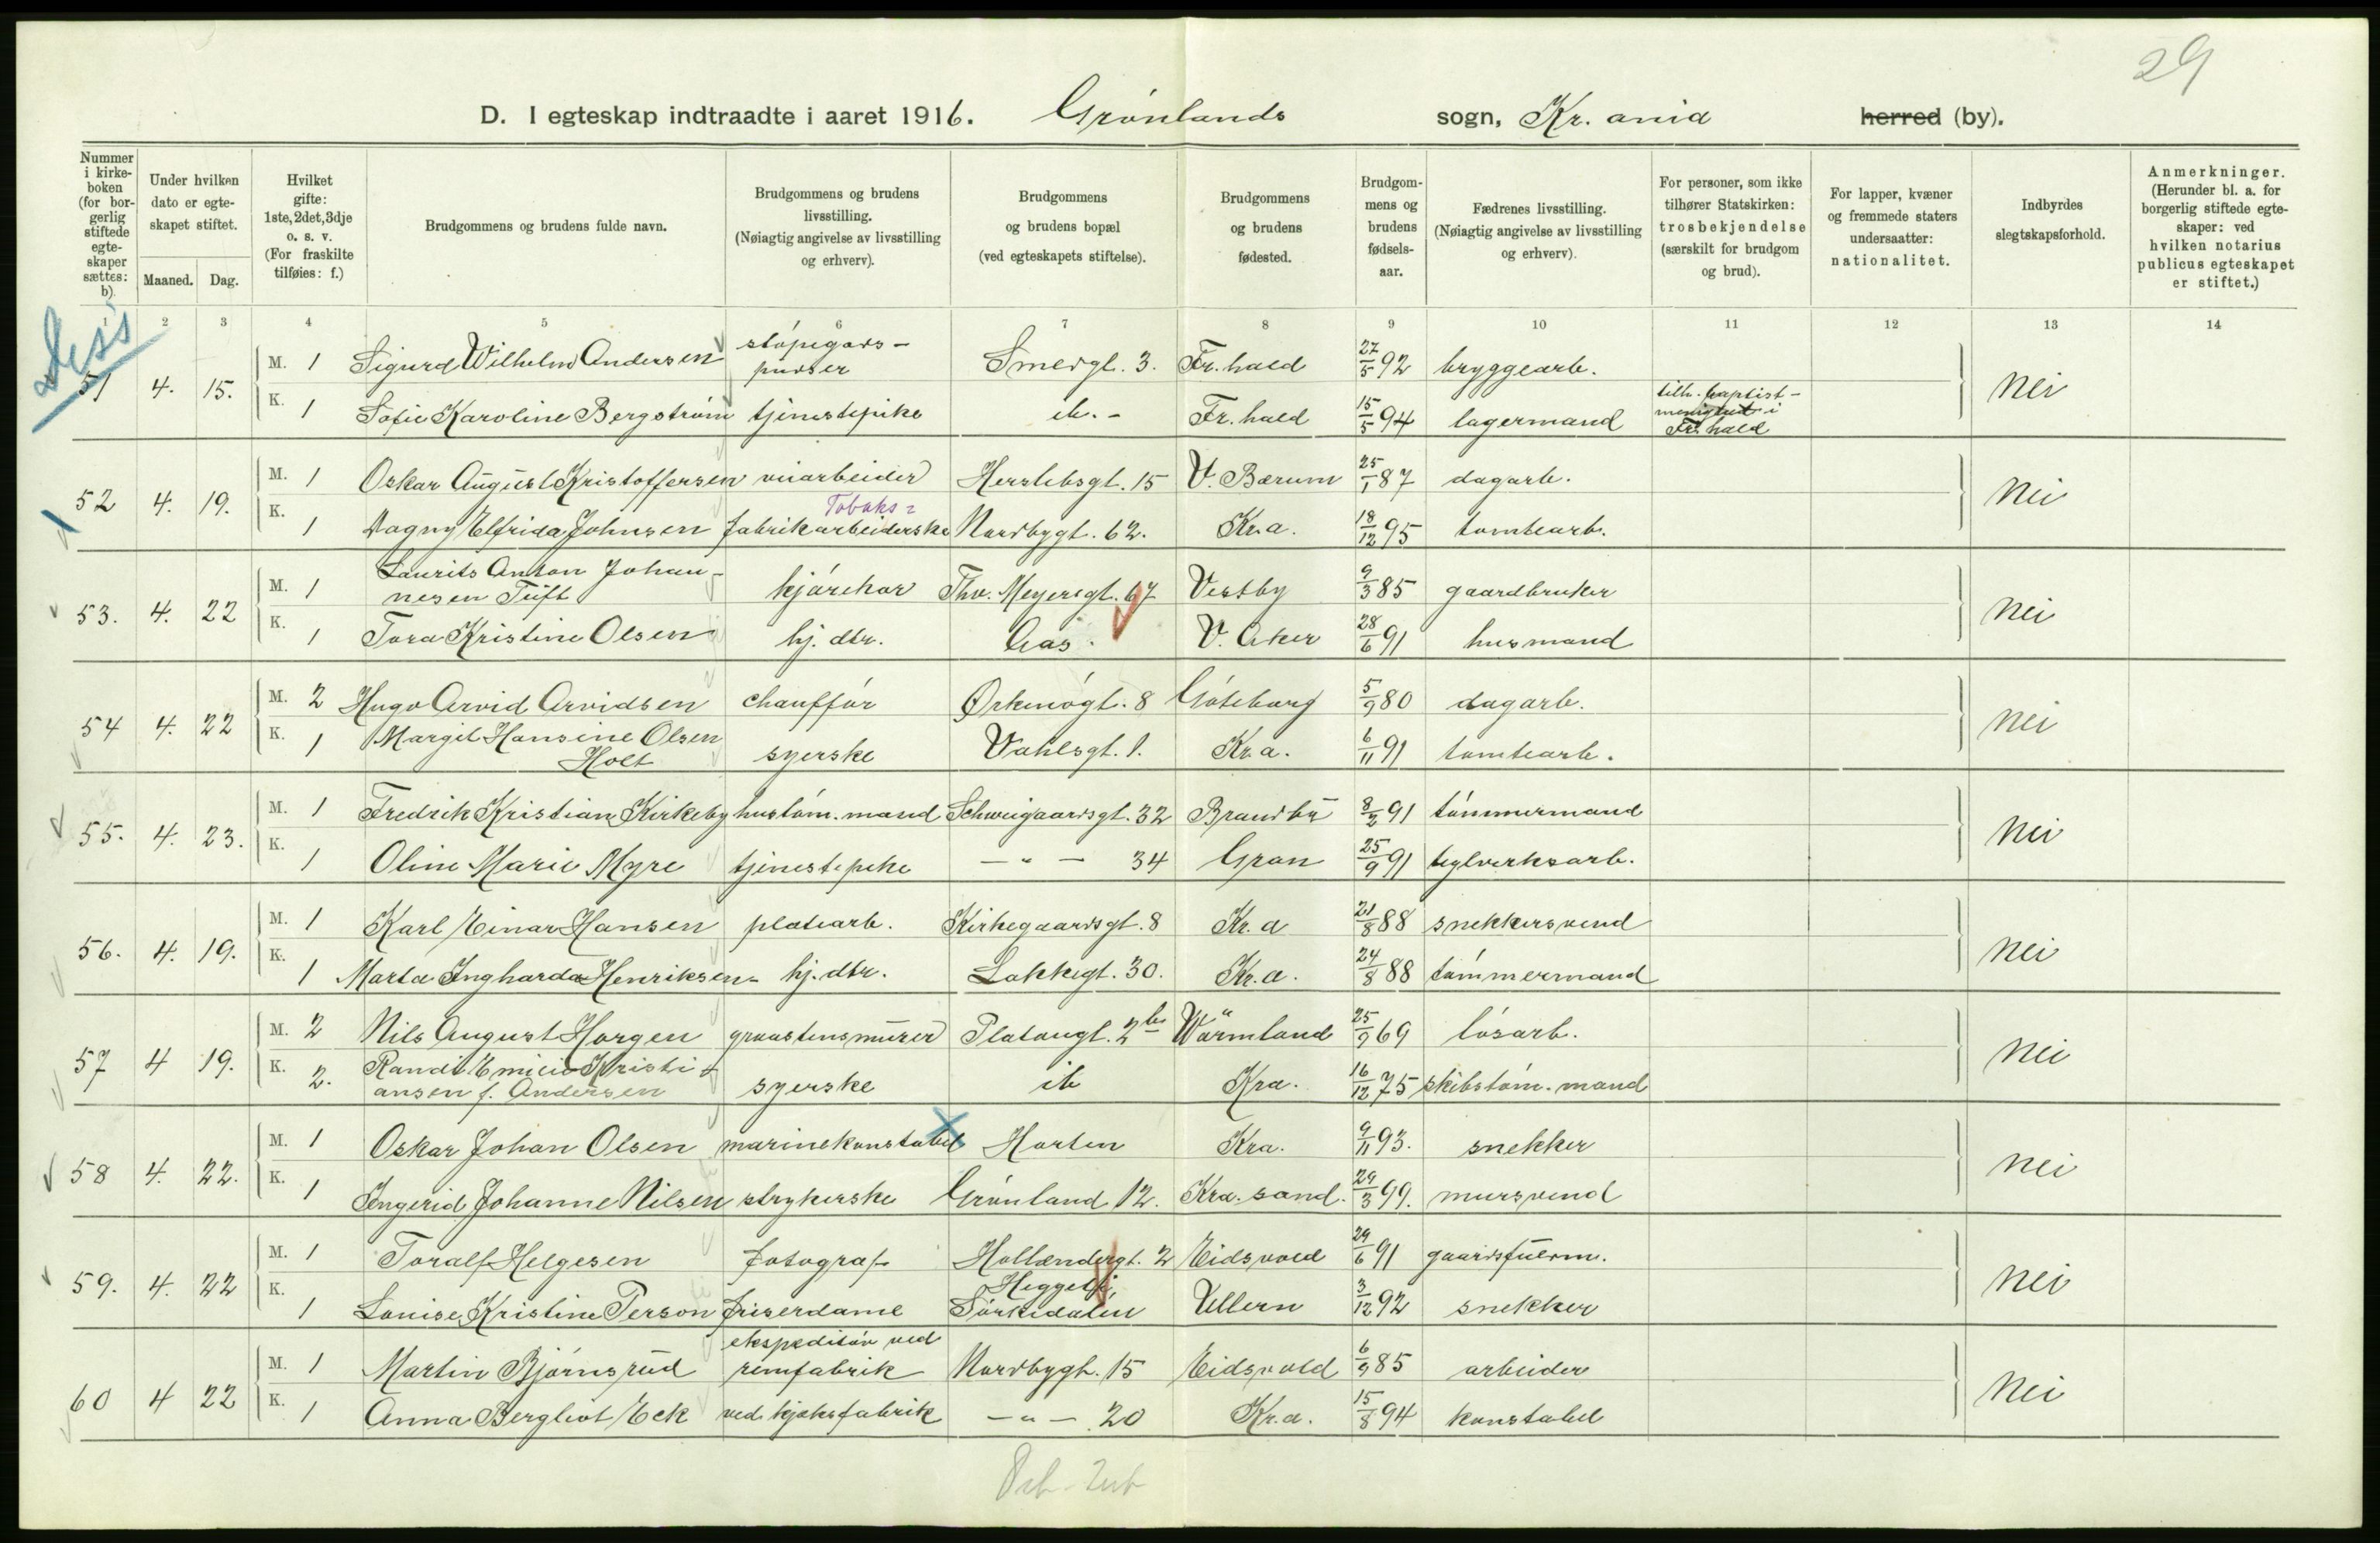 29
D. I egteskap indtraadte i aaret 1916. Grønlands sogn, Kr.ania herred (by).
Nummer i kirkeboken (for borgerlig stiftede egteskaper sættes: b).
Under hvilken dato er egteskapet stiftet.
Maaned. Dag.
Hvilket gifte: 1ste, 2det, 3dje o. s. v. (For fraskilte tilføies: f.)
Brudgommens og brudens fulde navn.
Brudgommens og brudens livsstilling. (Nøiagtig angivelse av livsstilling og erhverv).
Brudgommens og brudens bopæl (ved egteskapets stiftelse).
Brudgommens og brudens fødested.
Brudgommens og brudens fødselsaar.
Fædrenes livsstilling. (Nøiagtig angivelse av livsstilling og erhverv).
For personer, som ikke tilhører Statskirken: trosbekjendelse (særskilt for brudgom og brud).
For lapper, kvæner og fremmede staters undersaatter: nationalitet.
Indbyrdes slegtskapsforhold.
Anmerkninger. (Herunder bl. a. for borgerlig stiftede egteskaper: ved hvilken notarius publicus egteskapet er stiftet.)
1 2 3 4 5 6 7 8 9 10 11 12 13 14
51 4. 15. M. 1 Sigurd Wilhelm Andersen støpegodspudser Smedgt. 3. Fr.hald 27/5 92 bryggearb. Nei
K. 1 Sofie Karoline Bergstrøm tjenestepike ib. - Fr.hald 15/5 94 lagermand tilh. baptistmenighet i Fr.hald
52 4. 19. M. 1 Oskar August Kristoffersen veiarbeider Herslebsgt. 15 V. Bærum 25/1 87 dagarb. Nei
K. 1 Dagny Elfrida Johnsen Tobaks= fabrikarbeiderske Nordbygt. 62. Kr.a. 18/12 95 tomtearb.
53. 4. 22 M. 1 Laurits Anton Johannesen Tuft kjørekar Thv. Meyersgt. 67 Vestby 9/3 85 gaardbruker Nei
K. 1 Tora Kristine Olsen hj. dtr. Aas. V. Aker 28/6 91 husmand
54 4. 22 M. 2 Hugo Arvid Arvidsen chauffør Ørkenøgt. 8 Göteborg 5/9 80 dagarb. Nei
K. 1 Margit Hansine Olsen Holt syerske Vahlsgt. 1. Kr.a. 6/11 91 tomtearb.
55. 4. 23. M. 1 Fredrik Kristian Kirkeby hustøm.mand Schweigaardsgt. 32 Brandbu 8/2 91 tømmermand Nei
K. 1 Oline Marie Myre tjenestepike — " — 34 Gran 25/9 91 teglverksarb.
56. 4. 19. M. 1 Karl Einar Hansen platearb. Kirkegaardsgt. 8 Kr.a 21/8 88 snekkersvend Nei
K. 1 Marta Ingharda Henriksen hj. dtr. Lakkegt. 30. Kr.a. 24/8 88 tømmermand
57 4 19. M. 2 Nils August Horgen graastensmurer Platougt. 2b Wärmland 25/9 69 løsarb. Nei
K. 2. Randi Emilie Kristiansen f. Andersen syerske ib Kra. 16/12 75 skibstøm.mand
58 4. 22. M. 1 Oskar Johan Olsen marinekonstabel Horten Kra. 9/11 93. snekker Nei
K. 1 Ingerid Johanne Nilsen strykerske Grønland 12. Kra.sand. 29/3 99. mursvend
59. 4. 22 M. 1 Toralf Helgesen fotograf Hollendergt. 2 Eidsvold 29/6 91 gaardsfuldm. Nei
K. 1 Louise Kristine Person friserdame Heggeli, Sørkedalen Ullern 3/12 92 snekker
60 4 22 M. 1 Martin Bjørnsrud ekspeditør ved remfabrik Nordbygt. 15 Eidsvold 6/9 85 arbeider Nei
K. 1 Anna Bergliot Eck ved kjeksfabrik — " — 20 Kr.a. 15/8 94 konstabel